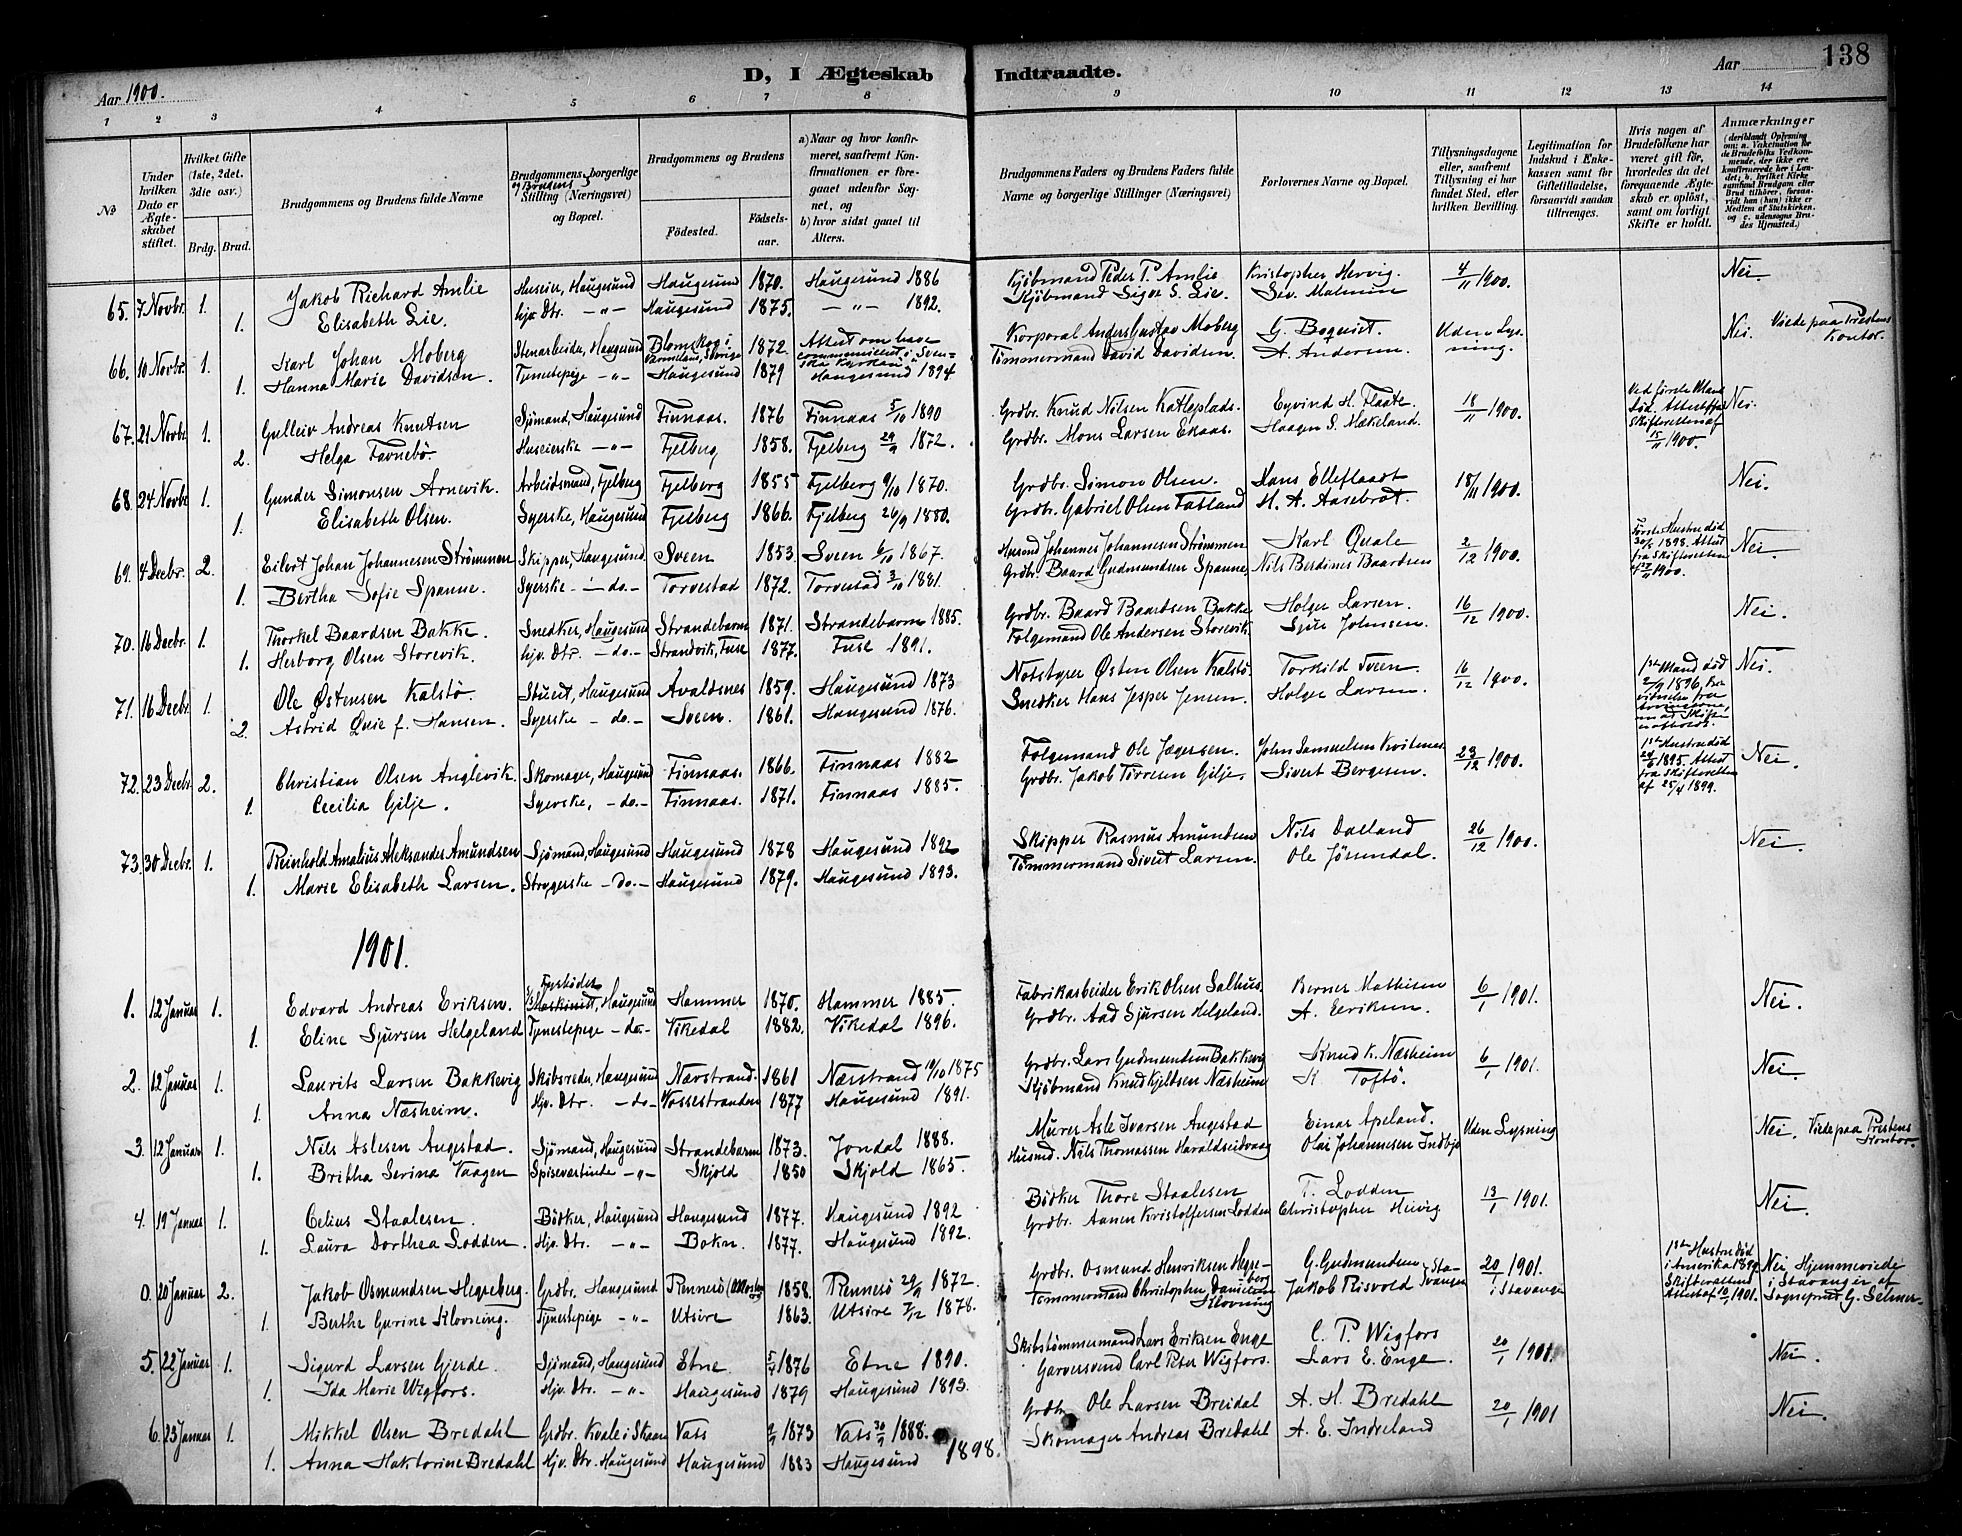 D, I Ægteskab Indtraadte.
138
Aar 1900.
Aar
1 2 3 4 5 6 7 8 9 10 11 12 13 14
No
Under hvilken Dato er Ægteskabet stiftet.
Hvilket Gifte (1ste, 2det, 3die osv.)
Brdg. Brud.
Brudgommens og Brudens fulde Navne
Brudgommens og Brudens borgerlige Stilling (Næringsvei) og Bopæl.
Brudgommens og Brudens
Födested. Födselsaar.
a) Naar og hvor konfirmeret, saafremt Konfirmationen er foregaaet udenfor Sognet, og b) hvor sidst gaaet til Alters.
Brudgommens Faders og Brudens Faders fulde Navne og borgerlige Stillinger (Næringsvei)
Forlovernes Navne og Bopæl.
Tillysningsdagene eller, saafremt Tillysning ei har fundet Sted, efter hvilken Bevilling.
Legitimation for Indskud i Enkekassen samt for Giftetilladelse, forsaavidt saadan tiltrænges.
Hvis nogen af Brudefolkene har været gift før, hvorledes da det foregaaende Ægteskab er opløst, samt om lovligt Skifte er holdt.
Anmærkninger
65. 7 Novbr. 1. Jakob Richard Amlie Huseier, Haugesund Haugesund 1870. Haugesund 1886 Kjøbmand Peder P. Amlie Kristopher Hervig. 4/11 1900. Nei
1. Elisabeth Lie. hjv. Dtr. -"- Haugesund 1875. -"- 1892. Kjøbmand Sigve S. Lie. Sev. Malmin
66. 10 Novbr. 1. Karl Johan Moberg Stenarbeider, Haugesund Blomskog i Värmeland, Sverige 1872. Attest om have communiceret i Svenska Kyrkan Korporal Anders Gustav Moberg G. Boquist. Uden Lysning. Nei. Viede paa Prestens Kontor.
1. Hanna Marie Davidsen. Tjenestepige -"- Haugesund 1879 Haugesund 1894 Tömmermand David Davidsen. A. Andersen.
67. 21 Novbr 1. Gulleiv Andreas Knutsen Sjömand, Haugesund Finnaas. 1876 Finnaas 5/10 1890 Grdbr. Knud Nilsen Katleplads. Eyvind H. Flaate. 18/11 1900. Ved første Mands Død. Attest fra Skifteretten af 15/11 1900. Nei.
2. Helga Favnebö. Huseierske -"- Fjelberg 1858. Fjelberg 29/9 1872. Grdbr. Mons Larsen Ekaas. Haagen S. Mækeland.
68. 24 Novbr 1. Gunder Simonsen Arnevik. Arbeidsmand, Fjelberg Fjelberg 1855 Fjelberg 9/10 1870. Grdbr. Simon Olsen. Hans Elleflaadt 18/11 1900. Nei.
1. Elisabeth Olsen. Syerske, Haugesund Fjelberg 1866. Fjelberg 26/9 1880. Grdbr. Gabriel Olsen Fatland H. A. Aasebröt.
69. 4 Decbr. 2. Eilert Johan Johannesen Strømmen Skipper, Haugesund Sveen 1853 Sveen 6/10 1867. Husmd Johannes Johannesen Strömmen Karl Quale 2/12 1900. Første Hustru død 1898. Attest fra Skifteretten 1900. Nei
1. Bertha Sofie Spanne. Syerske - do. - Torvestad 1872. Torvestad 3/10 1881. Grdbr. Baard Gudmundsen Spanne, Nils Berdines Baardsen
70. 16 Decbr. 1. Thorkel Baardsen Bakke. Snedker, Haugesund Strandebarm 1871. Strandebarm 1885. Grdbr. Baard Baardsen Bakke Holger Larsen. 16/12 1900. Nei.
1. Herborg Olsen Storevik. hjv. Dtr. - do. - Strandvik, Fuse 1877. Fuse 1891. Folgemand Ole Andersen Storevik. Sjur Johnsen.
71. 16 Decbr. 1. Ole Østensen Kalstø. Stuert, Haugesund Avaldsnes 1859. Haugesund 1873 Notstyrer Østen Olsen Kalstø. Torkild Sveen 16/12 1900. 1ste Mand død 1896 Nei.
2. Astrid Qvie f. Hansen. Syerske - do. - Sveen. 1861. Haugesund 1876. Snedker Hans Jesper Jensen. Holger Larsen.
72. 23 Decbr. 2. Christian Olsen Anglevik. Skomager, Haugesund Finnaas. 1866. Finnaas 1882 Folgemand Ole Jægersen. John Samuelsen Kvitnes 23/12 1900. 1ste Hustru død 1895. Attest fra Skifteretten af 25/4 1899. Nei.
1. Cecilia Gilje. Syerske, - do. - Finnaas. 1871. Finnaas 1885. Grdbr. Jakob Tørresen Gilje. Sivert Bergesen.
73. 30 Decbr. 1. Reinhold Amalius Aleksander Amundsen Sjömand, Haugesund Haugesund 1878 Haugesund 1892 Skipper Rasmus Amundsen Nils Dalland 26/12 1900. Nei.
1. Marie Elisabeth Larsen. Strygerske - do. - Haugesund 1879. Haugesund 1893. Tömmermand Sivert Larsen. Ole Jösendal.
1901.
1. 12 Januar 1. Edvard Andreas Eriksen. Fyrbøder Maskinist, Haugesund Hammer 1870. Hammer 1885. Fabrikarbeider Erik Olsen Salhus. Berner Mathisen 6/1 1901. Nei.
1. Eline Sjursen Helgeland Tjenestepige - do. - Vikedal 1882. Vikedal 1896. Grdbr. Aad Sjursen Helgeland. A. Eeriksen.
2. 12 Januar 1. Laurits Larsen Bakkevig Skibsreder, Haugesund Nærstrand. 1861 Nærstrand 19/10 1875 Grdbr. Lars Gudmundsen Bakkevig Knud K. Næsheim 6/1 1901. Nei.
1. Anna Næsheim. Hjv. Dtr. - do - Vossestranden 1877 Haugesund 1891. Kjøbmand Knud Kjeldsen Næsheim K. Toftö.
3. 12 Januar 1. Nils Aslesen Augestad. Sjömand, Haugesund Strandebarm 1873. Jondal 1888. Murer Asle Ivarsen Augestad Einar Apeland. Uden Lysning Nei. Viede paa Prestens Kontor.
1. Britha Serina Vaagen Spisevertinde -"- Skjold 1850 Skjold 1865. Husmd. Nils Thomassen Haraldseidvaag Olai Johannesen Indbjo
4. 19 Januar 1. Celius Staalesen. Bödker, Haugesund Haugesund 1877. Haugesund 1892 Bödker Thore Staalesen T. Lodden 13/1 1901. Nei.
1. Laura Dorthea Lodden. Hjv. Dtr. -"- Bokn. 1877. Haugesund 1892. Grdbr. Aanen Kristoffersen Lodden Christopher Hervig
0. 20 Januar 2. Jakob Osmundsen Heggeberg. Grdbr. Haugesund Rennesö (Mosterö) 1858. Rennesö 29/9 1872. Grdbr. Osmund Henriksen Heggeberg G. Gudmundsen Stavanger 20/1 1901. i Stavanger 1ste Hustru død i Amerika Skifterettens Attest af 10/1 1901. Nei Hjemmeviede i Stavanger af Sogneprest G. Selmer.
1. Berthe Gurine Klovning. Tjenestepige -"- Utsire 1863. Utsire 7/12 1878. Tømmermand Christopher Danielsen Klovning Jakob Risvold
5. 22 Januar 1. Sigurd Larsen Gjerde. Sjömand, Haugesund Etne 5/4 1876 Etne 1890. Skibstömmermand Lars Eriksen Enge C. P. Wigfors 20/1 1901. Nei.
1. Ida Marie Wigfors. Hjv. Dtr. -"- Haugesund 1879 Haugesund 1893. Garversvend Carl Peter Wigfors. Lars E. Enge.
6. 23 Januar 1. Mikkel Olsen Bredahl Grdbr. Kvale i Skaare Vats 1873 Vats 30/9 1888. Grdbr. Ole Larsen Breidal A. H. Bredahl 20/1 1901 Nei.
1. Anna Haktorine Bredahl Hjv. Dtr. Haugesund Haugesund 1883 Haugesund 1898. Skomager Andreas Bredahl A. E. Indreland